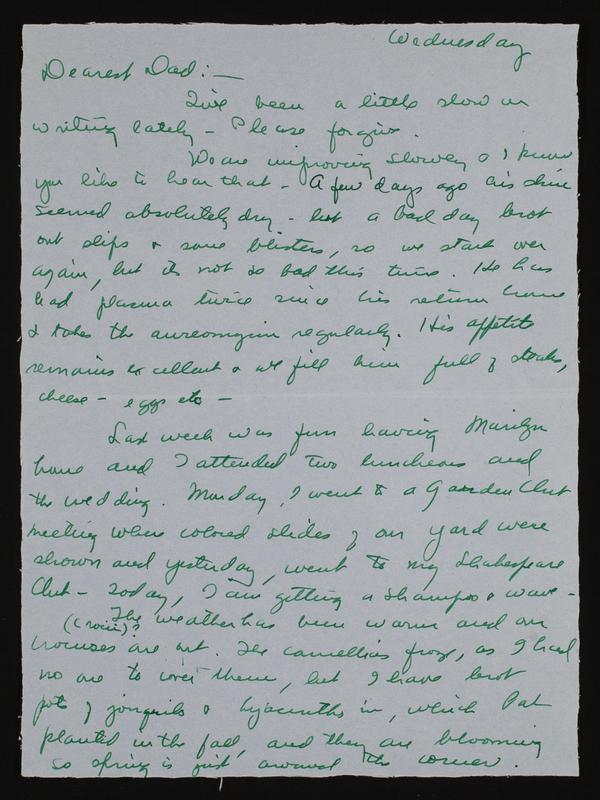 Wednesday
Dearest Dad:—
I've been a little slow in
writing lately - Please forgive.
We are improving slowly & I know
you like to hear that - A few days ago his skin
seemed absolutely dry - but a bad day brot
out slips & some blisters, so we start over
again, but its not so bad this time. He has
had plasma twice since his return home
& takes the aureomycin regularly. His appetite
remains excellent & we fill him full of steaks,
cheese - eggs etc -
Last week was fun having Marilyn
home and I attended two luncheons and
the wedding. Monday, I went to a Garden Club
meeting where colored slides of our yard were
shown and yesterday, went to my Shakespeare
Club - Today, I am getting a shampoo & wave -
The weather has been warm and our
(croci)?
crocuses are out. The camellias froze, as I had
no one to cover them, but I have brot
pots of jonquils & hyacinths in, which Pat
planted in the fall, and they are blooming
so spring is just around the corner.